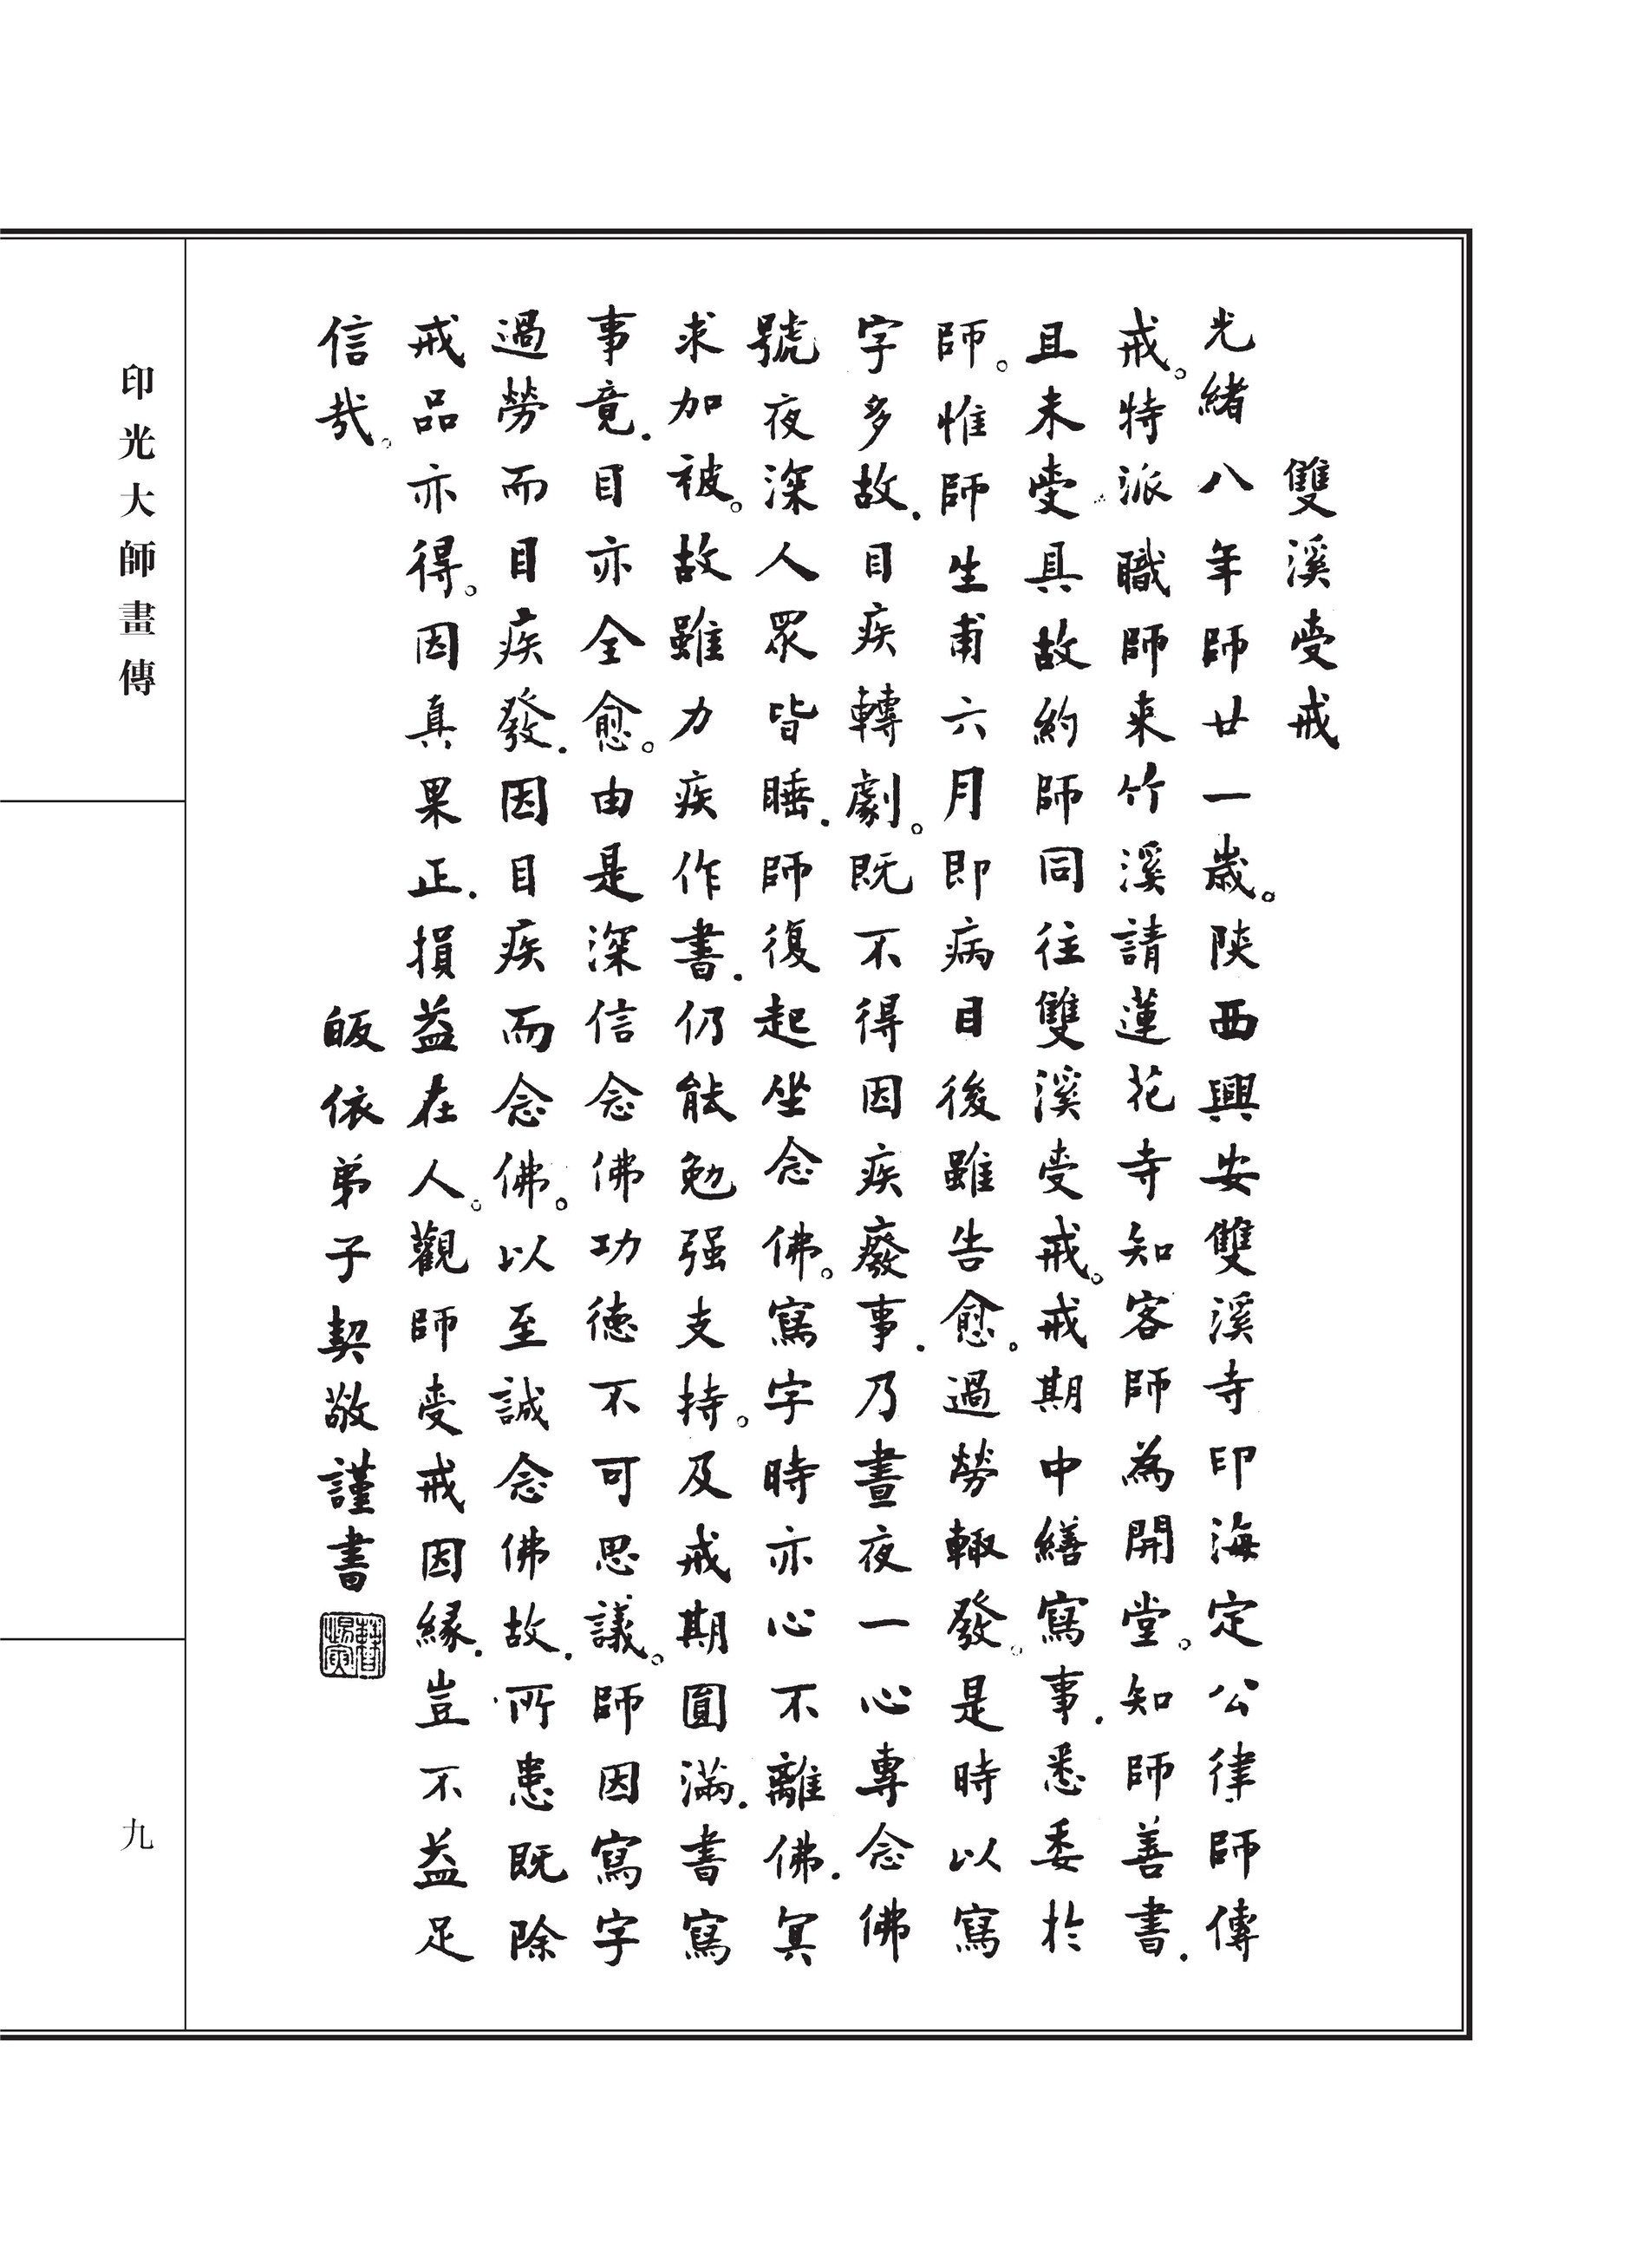 雙溪受戒
光緒八年師廿一歲。陝西興安雙溪寺印海定公律師傳
戒。特派職師來竹溪請蓮花寺知客師為開堂。知師善書.
且未受具故約師同往雙溪受戒。戒期中繕寫事.悉委於
師。惟師生甫六月即病目後雖告愈。過勞輒發。是時以寫
字多故.目疾轉劇。既不得因疾廢事.乃晝夜一心專念佛
號夜深人眾皆睡.師復起坐念佛。寫字時亦心不離佛.冥
求加被。故雖力疾作書.仍能勉强支持。及戒期圓滿.書寫
事竟.目亦全愈。由是深信念佛功德不可思議。師因寫字
過勞而目疾發.因目疾而念佛。以至誠念佛故.所患既除
戒品亦得。因真果正.損益在人。觀師受戒因緣.豈不益足
信哉。
皈依弟子契敬謹書
印光大師畫傳
九